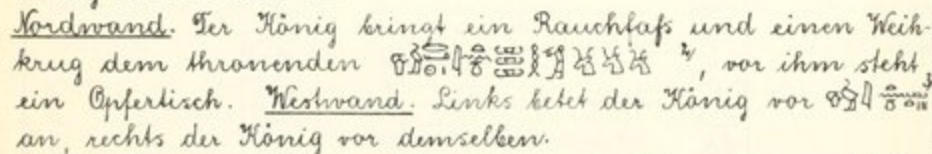 Nordwand. Der König bringt ein Rauchfafs und einen Weih-
krug dem thronenden 2), vor ihm steht
ein Opfertisch. Westwand. Links betet der König vor 3)
an, rechts der König vor demselben.